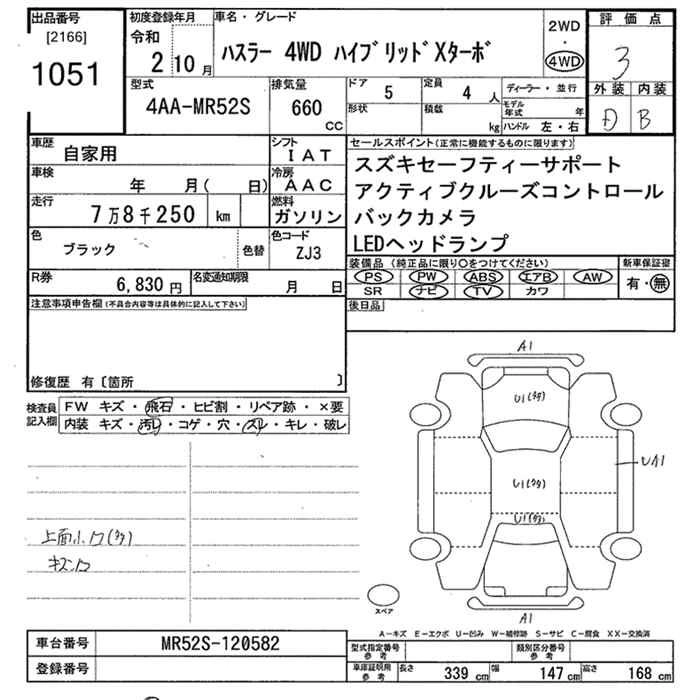 出品番号
[2166]
1051
初度登録年月
令和
2 10 月
車名・グレード
ハスラー 4WD ハイブリッドXターボ
2WD
・
4WD
評価点
3
外装 内装
D B
型式
4AA-MR52S
排気量
660
CC
ドア 5
形状
定員 4 人
積載 kg
ディーラー・並行
モデル年式 年
ハンドル 左・右
車歴
自家用
シフト
IAT
車検
年 月( 日)
冷房
AAC
走行
7万8千250 km
燃料
ガソリン
色
ブラック
色替
色コード
ZJ3
R券
6,830 円
名変通知期限
月 日
セールスポイント(正常に機能するものに限ります)
スズキセーフティーサポート
アクティブクルーズコントロール
バックカメラ
LEDヘッドランプ
装備品(純正品に限り○をつけてください)
PS PW ABS エアB AW
SR ナビ TV カワ
新車保証書
有・無
後日品
注意事項申告欄(不具合内容等は具体的に記入して下さい)
修復歴 有〔箇所 〕
検査員
記入欄
FW キズ・飛石・ヒビ割・リペア跡・×要
内装 キズ・汚レ・コゲ・穴・スレ・キレ・破レ
上面小U(多)
A1
U1(多)
UA1
U1(多)
U1(多)
A1
スペア
A-キズ E-エクボ U-凹み W-補修跡 S-サビ C-腐食 XX-交換済
車台番号
MR52S-120582
登録番号
型式指定番号
参考
類別区分番号
参考
車庫証明用
参考
長さ 339 cm 幅 147 cm 高さ 168 cm